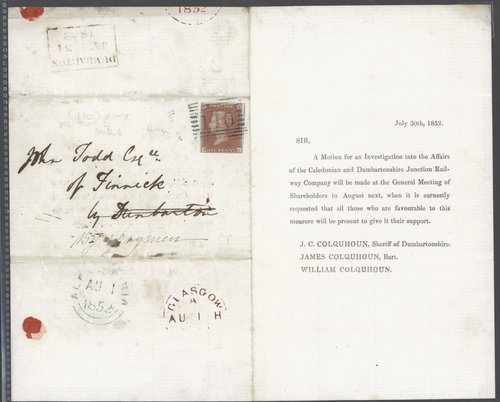 1852
DUMBARTON
John Todd Esqre
of Finnick
by Dumbarton
GLASGOW
A
AU 1 H
AU 1
1852
July 30th, 1852.
SIR,
A Motion for an Investigation into the Affairs
of the Caledonian and Dumbartonshire Junction Rail-
way Company will be made at the General Meeting of
Shareholders in August next, when it is earnestly
requested that all those who are favourable to this
measure will be present to give it their support.
J. C. COLQUHOUN, Sheriff of Dumbartonshire.
JAMES COLQUHOUN, Bart.
WILLIAM COLQUHOUN.